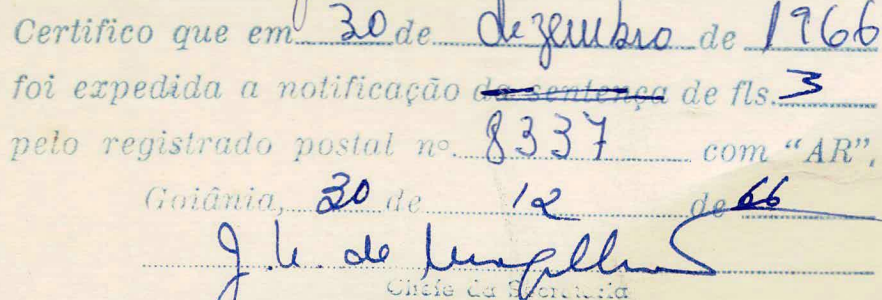 Certifico que em 30 de dezembro de 1966
foi expedida a notificação da sentença de fls. 3
pelo registrado postal nº 8337 com "AR".
Goiânia, 30 de 12 de 66
J. de Magalhães
Chefe da Secretaria